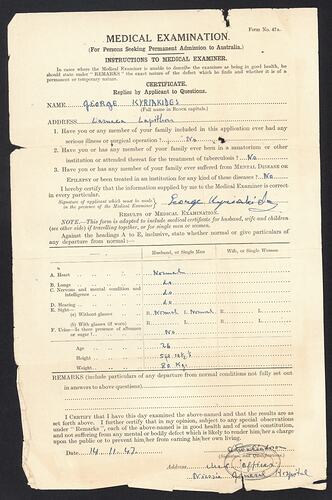 Form No. 47A.
MEDICAL EXAMINATION.
(For Persons Seeking Permanent Admission to Australia.)
INSTRUCTIONS TO MEDICAL EXAMINER.
In cases where the Medical Examiner is unable to describe the examinee as being in good health, he
should state under "REMARKS" the exact nature of the defect which he finds and whether it is of a
permanent or temporary nature.
CERTIFICATE.
Replies by Applicant to Questions.
NAME GEORGE KYRIAKIDES
(Full name in BLOCK capitals.)
ADDRESS Larnaca Lapithou
1. Have you or any member of your family included in this application ever had any
serious illness or surgical operation? No
2. Have you or has any member of your family ever been in a sanatorium or other
institution or attended thereat for the treatment of tuberculosis? No
3. Have you or has any member of your family ever suffered from MENTAL DISEASE or
EPILEPSY or been treated in an institution for any kind of these diseases? No
I hereby certify that the information supplied by me to the Medical Examiner is correct
in every particular.
Signature of applicant (which must be made
in the presence of the Medical Examiner) George Kyriakides
RESULTS OF MEDICAL EXAMINATION.
NOTE.—This form is adapted to include medical certificate for husband, wife and children
(see other side) if travelling together, or for single men or women.
Against the headings A to E, inclusive, state whether normal or give particulars of
any departure from normal:—
Husband, or Single Men
Wife, or Single Women
A. Heart Normal
B. Lungs do
C. Nervous and mental condition and
intelligence do
D. Hearing do
E. Sight—
(a) Without glasses R. Normal L. Normal R. L.
(b) With glasses (if worn) R. L. R. L.
F. Urine—Is there presence of albumen
or sugar? No
Age 26
Height
Weight 80 Kgr
REMARKS (include particulars of any departure from normal conditions not fully set out
in answers to above questions)
I CERTIFY that I have this day examined the above-named and that the results are as
set forth above. I further certify that in my opinion, subject to any special observations
under "Remarks", each of the above-named is in good health and of sound constitution,
and not suffering from any mental or bodily defect which is likely to render him/her a charge
upon the public or to prevent him/her from earning his/her own living.
Date 14.11.47
Signature and Qualifications
Address
General Hospital